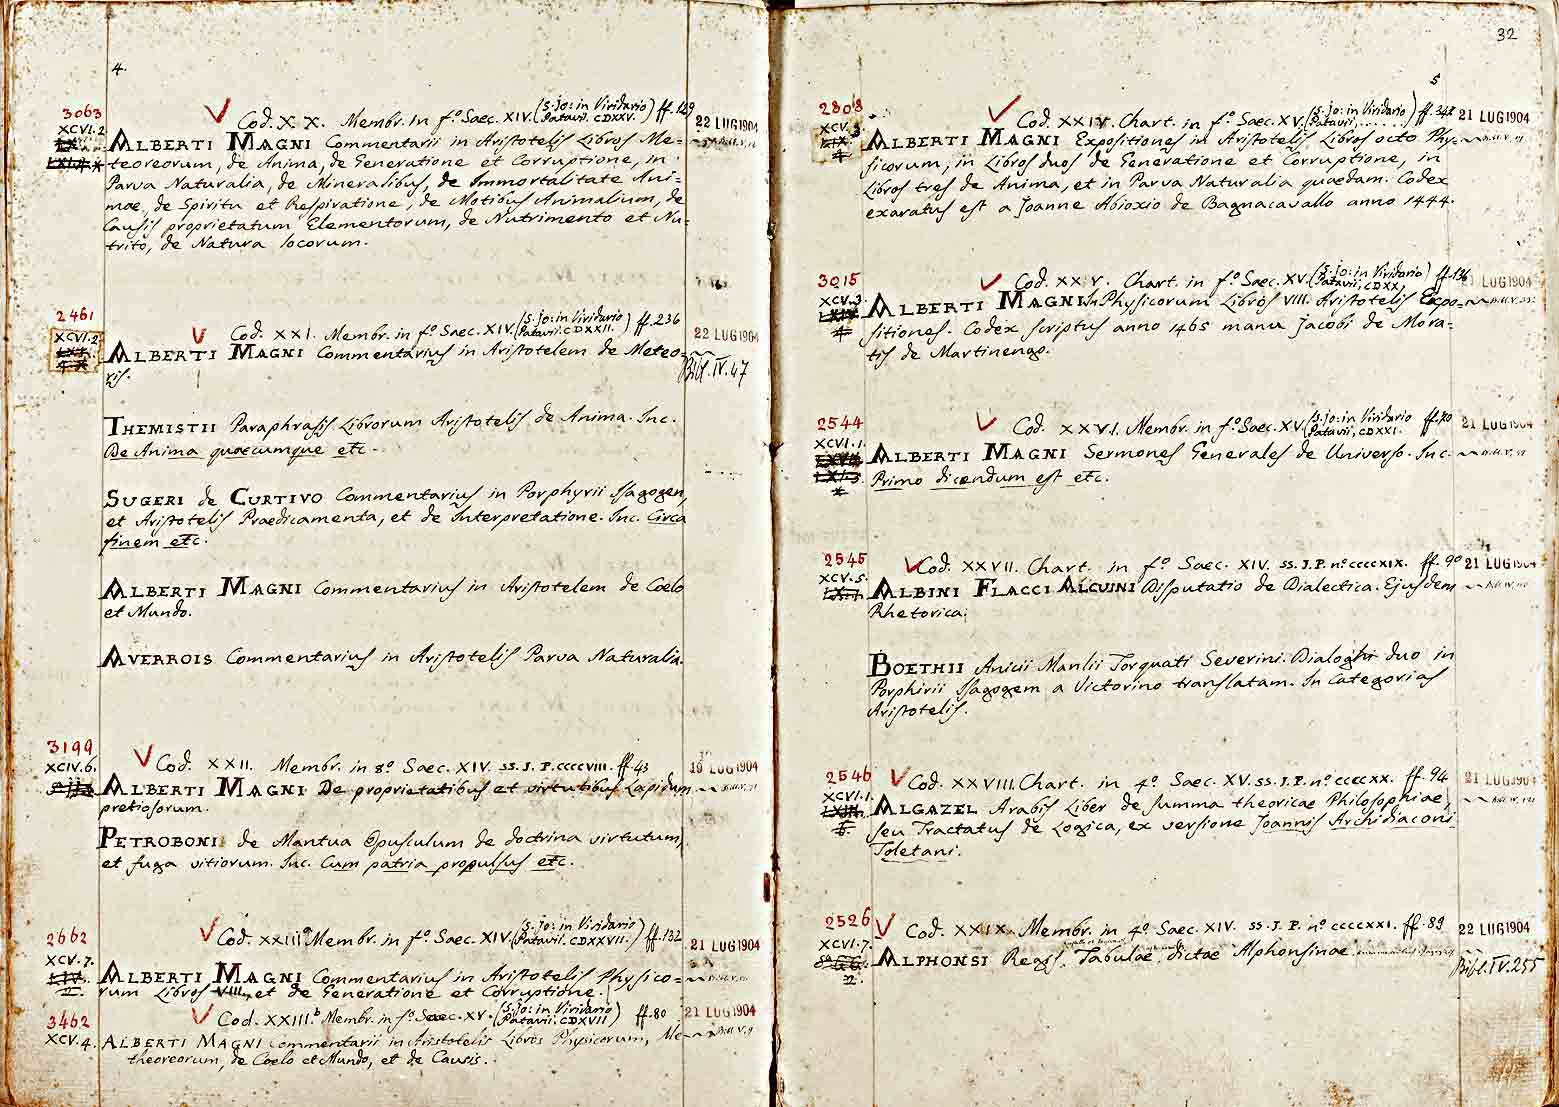 4.
3063
Cod. XX. Membr. in fº. Saec. XIV. (S. Jo: in Viridario Patavii. CDXXV.) ff. 129
22 LUG 1904
XCVI.2
ALBERTI MAGNI Commentarii in Aristotelis Libros Me=
teoreorum, de Anima, de Generatione et Corruptione, in
Parva Naturalia, de Mineralibus, de Immortalitate Ani=
mae, de Spiritu et Respiratione, de Motibus Animalium, de
Causis proprietatum Elementorum, de Nutrimento et Nu=
trito, de Natura locorum.
2461
Cod. XXI. Membr. in fº. Saec. XIV. (S. Jo: in Viridario Patavii. CDXXII.) ff. 236
22 LUG 1904
XCVI.2
ALBERTI MAGNI Commentarius in Aristotelem de Meteo=
ris.
Bibl. IV. 47
THEMISTII Paraphrasis Librorum Aristotelis de Anima. Inc.
De Anima quaecumque etc.
SUGERI de CURTIVO Commentarius in Porphyrii Isagogen,
et Aristotelis Praedicamenta, et de Interpretatione. Inc. Circa
finem etc.
ALBERTI MAGNI Commentarius in Aristotelem de Coelo
et Mundo.
AVERROIS Commentarius in Aristotelis Parva Naturalia.
3199
Cod. XXII. Membr. in 8º Saec. XIV. SS. J. P. CCCCVIII. ff. 43
19 LUG 1904
XCIV.6.
ALBERTI MAGNI De proprietatibus et virtutibus Lapidum
pretiosorum.
PETROBONI de Mantua Opusculum de doctrina virtutum,
et fuga vitiorum. Inc. Cum patria propulsus etc.
2662
Cod. XXIIIª Membr. in fº. Saec. XIV. (S. Jo: in Viridario Patavii. CDXXVII.) ff. 132
21 LUG 1904
XCV.7.
ALBERTI MAGNI Commentarius in Aristotelis Physico=
rum Libros VIII, et de Generatione et Corruptione.
3462
Cod. XXIII.b Membr. in fº. Saec. XV. (S. Jo: in Viridario Patavii. CDXVII) ff. 80
21 LUG 1904
XCV.4.
ALBERTI MAGNI Commentarii in Aristotelis Libros Physicorum, Me
theoreorum, de Coelo et Mundo, et de Causis.
32
5
2808
Cod. XXIV. Chart. in fº. Saec. XV. (S. Jo: in Viridario Patavii, ......) ff. 347
21 LUG 1904
XCV.3.
ALBERTI MAGNI Expositiones in Aristotelis Libros octo Phy=
sicorum, in Libros duos de Generatione et Corruptione, in
Libros tres de Anima, et in Parva Naturalia quaedam. Codex
exaratus est a Joanne Abioxio de Bagnacavallo anno 1444.
3015
Cod. XXV. Chart. in fº. Saec. XV. (S. Jo: in Viridario Patavii, CDXX) ff. 136
21 LUG 1904
XCV.3.
ALBERTI MAGNI In Physicorum Libros VIII. Aristotelis Expo=
sitiones. Codex scriptus anno 1465 manu Jacobi de Mora=
tis de Martinengo.
2544
Cod. XXVI. Membr. in fº. Saec. XV. (S. Jo: in Viridario Patavii, CDXXI. ff. 70
21 LUG 1904
XCVI.1.
ALBERTI MAGNI Sermones Generales de Universo. Inc.
Primo dicendum est etc.
2545
Cod. XXVII. Chart. in fº. Saec. XIV. SS. J. P. nº CCCCXIX. ff. 90
21 LUG 1904
XCV.5.
ALBINI FLACCI ALCUINI Disputatio de Dialectica. Ejusdem
Rhetorica.
BOETHII Anicii Manlii Torquati Severini. Dialoghi duo in
Porphirii Isagogem a Victorino translatam. In Categorias
Aristotelis.
2546
Cod. XXVIII. Chart. in 4º. Saec. XV. SS. J. P. nº CCCCXX. ff. 94
21 LUG 1904
XCVI.1.
ALGAZEL Arabis Liber de summa theoricae Philosophiae,
seu Tractatus de Logica, ex versione Joannis Archidiaconi
Toletani.
2526
Cod. XXIX. Membr. in 4º. Saec. XIV. SS. J. P. nº CCCCXXI. ff. 89
22 LUG 1904
XCVI.7.
ALPHONSI Regis, Tabulae, dictae Alphonsinae
Bibl. IV. 255